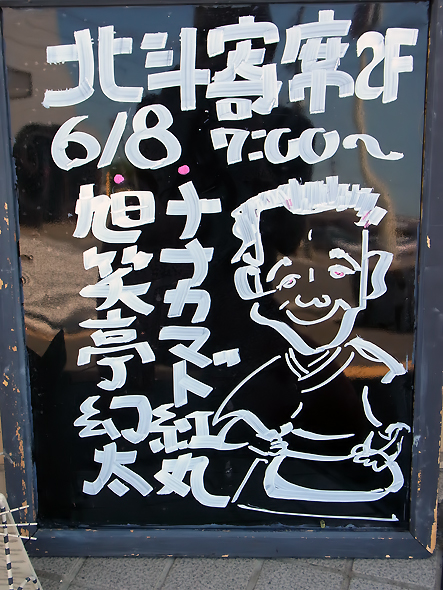 北斗寄席2F
6/8 7:00〜
ナナカマド紅丸
旭笑亭幻太